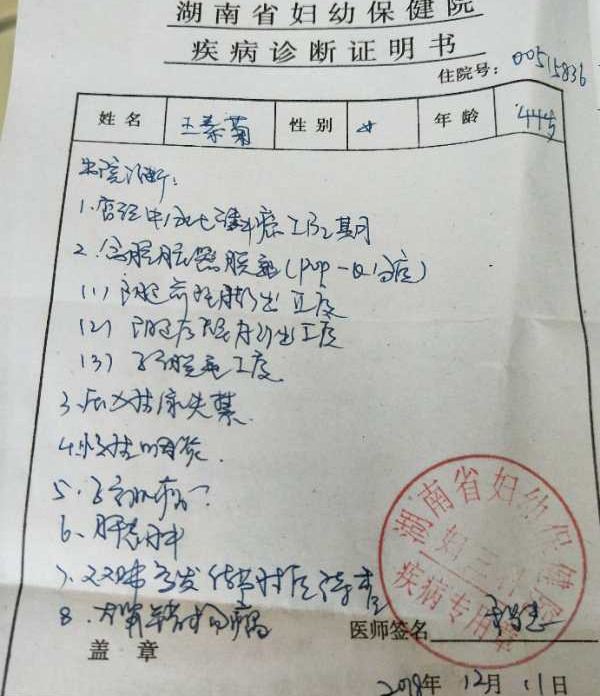 湖南省妇幼保健院
疾病诊断证明书
住院号: 00515836
姓名 王素菊 性别 女 年龄 44岁
出院诊断:
1.宫颈中分化鳞癌IB2期
2.盆腔脏器脱垂(pop-Q分度)
(1)阴道前壁膨出II度
(2)阴道后壁膨出I度
(3)子宫脱垂I度
3.压力性尿失禁
4.慢性咽炎
5.子宫肌瘤?
6.肝囊肿
7.双肺多发结节
8.
湖南省妇幼保健院
妇三科
疾病专用章
医师签名
盖章
2018年12月11日